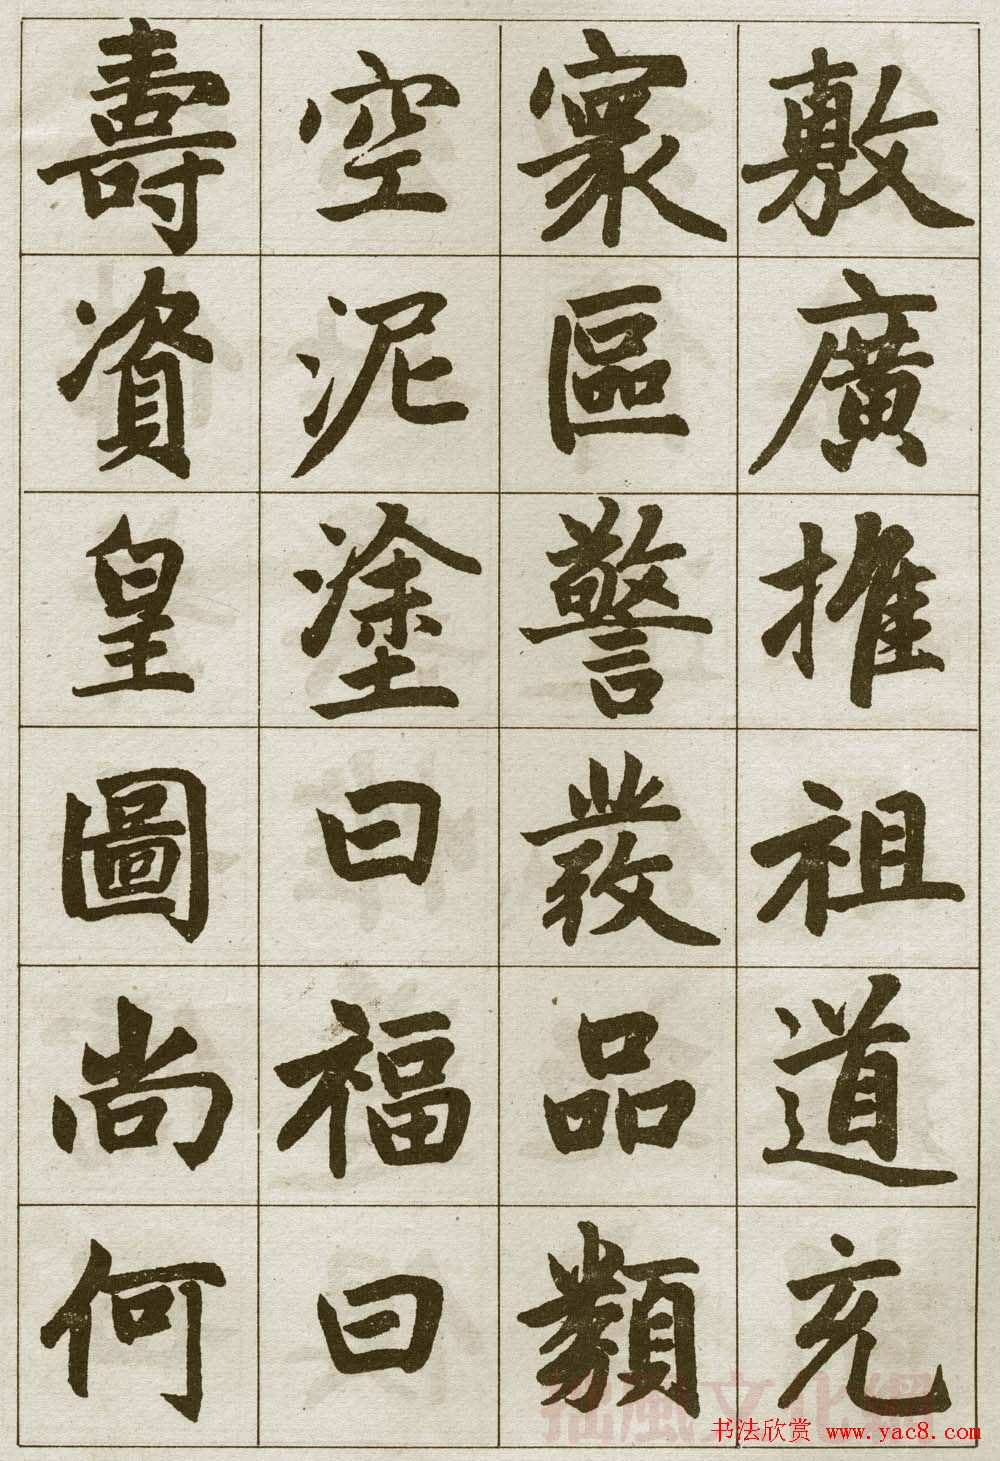 敷廣推祖道充
寰區警品類
空泥塗曰福曰
壽資皇圖尚何
拙風文化網
书法欣赏 www.yac8.com